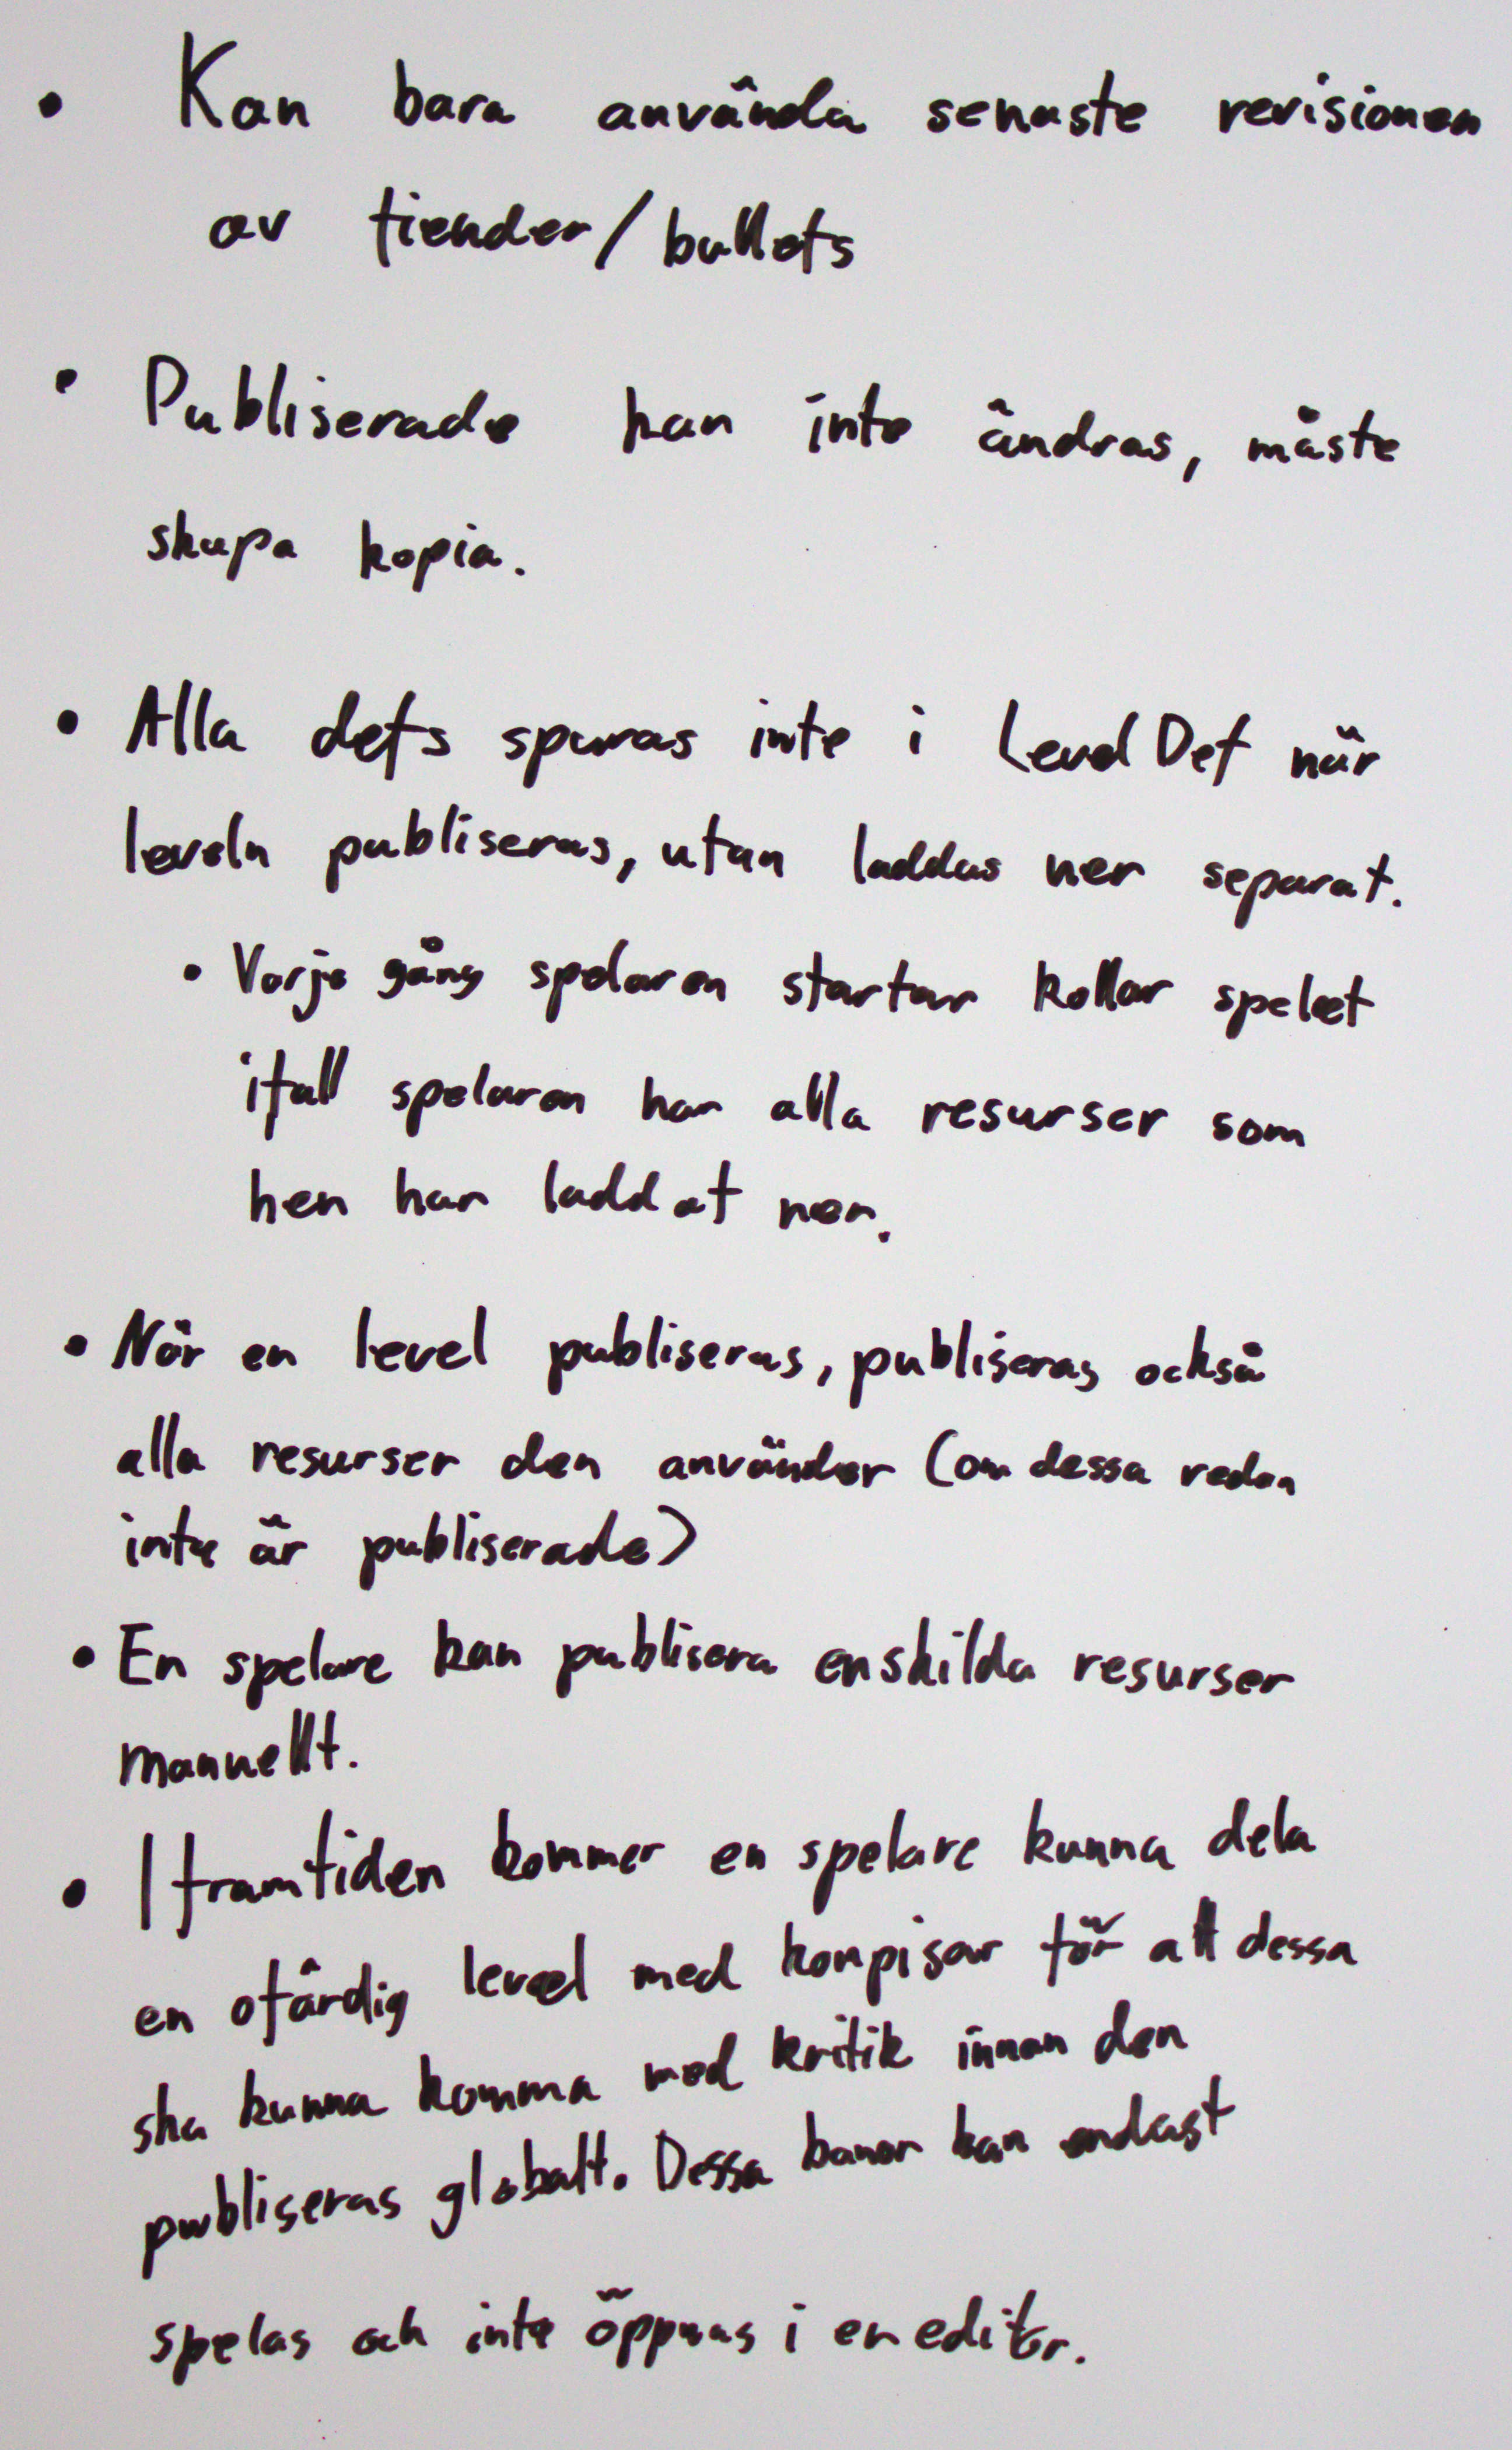 • Kan bara använda senaste revisionen
av fiender/bullets
• Publiserade kan inte ändras, måste
skapa kopia.
• Alla defs sparas inte i LevelDef när
leveln publiseras, utan laddas ner separat.
• Varje gång spelaren startar kollar spelet
ifall spelaren har alla resurser som
hen har laddat ner.
• När en level publiseras, publiseras också
alla resurser den använder (om dessa redan
inte är publiserade)
• En spelare kan publisera enskilda resurser
manuellt.
• I framtiden kommer en spelare kunna dela
en ofärdig level med kompisar för att dessa
ska kunna komma med kritik innan den
publiseras globalt. Dessa banor kan endast
spelas och inte öppnas i en editor.